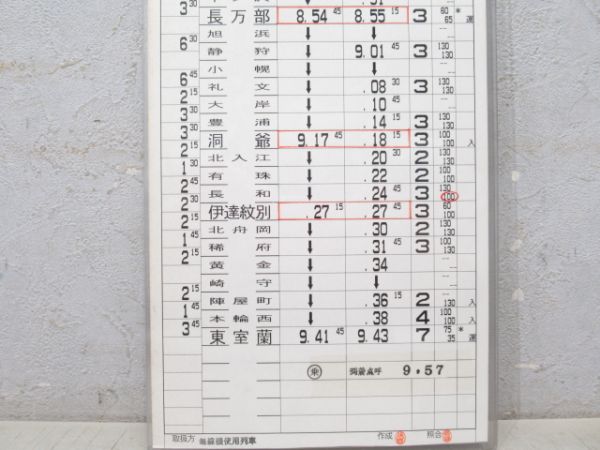 3 30
長万部 8.54 45 8.55 15 3 60 65 * 運
旭浜 ↓ ↓
6 30 静狩 ↓ 9.01 45 3 130 130
小幌 ↓ ↓
6 45 礼文 ↓ .08 30 3 130 130
2 15 大岸 ↓ .10 45
3 30 豊浦 ↓ .14 15 3 130 130
3 30 洞爺 9.17 45 .18 15 3 100 100 入
2 15 北入江 ↓ .20 30 2 130 130
1 30 有珠 ↓ .22 2 100 100
2 45 長和 ↓ .24 45 3 130 100
2 30 伊達紋別 .27 15 .27 45 3 60 100
2 15 北舟岡 ↓ .30 2 130
1 45 稀府 ↓ .31 45 3 100 130
2 15 黄金 ↓ .34
崎守 ↓ ↓
2 15 陣屋町 ↓ .36 15 2 130 入
1 45 本輪西 ↓ .38 4 100 100 入
3 45 東室蘭 9.41 45 9.43 7 75 35 * 運
乗 到着点呼 9.57
取扱方 無線機使用列車 作成 照合